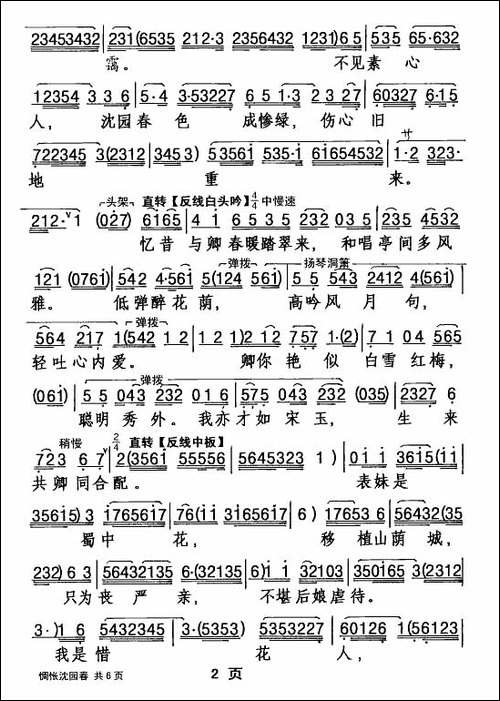 23453432 | 231(6535 212·3 2356432 1231)65 | 535 65·632
霭。 不见素心
12354 3 3 6 | 5·4 3·53227 651·3 2 327 | 60327 6·15
人， 沈园春色 成惨绿，伤心旧
722345 3(2312 3453) 53561 535·1 61654532 | 1·2 323·
地 重 来。 サ
头架 直转【反线白头吟】4/4 中慢速
212·i (027) 6165 | 4 i 6535 232 035 | 235 4532
忆昔 与卿春暖踏翠来，和唱亭间多风
弹拨 扬琴洞箫
121 (0761) | 542 4·561 5(124 561) | 54·543 2412 4(561)
雅。 低弹醉花荫， 高吟风月句，
弹拨
564 217 1(542 12 | 12 1)212 757 1·(2) | 71 04 565
轻吐心内爱。 卿你艳似 白雪红梅，
弹拨
(061) | 55 043 232 016 | 575 043 232 (035) | 2327 6
聪明秀外。我亦才如宋玉， 生来
稍慢 2/4 直转【反线中板】
723 67 | 2(3561 55556 | 5645323 1) | 0ii 3615(ii
共卿同合配。 表妹是
35615)3 | 1765617 | 76(ii 3165617 | 6) 17653 6 | 56432(35
蜀中 花， 移 植山荫城，
232)6 3 | 56432135 6·(32135 | 6)ii 32103 | 350165 3(2312
只为丧严亲， 不堪后娘虐待。
3·)1 6 | 54322345 | 3·(5353 5353227 | 60126 1(56123
我是惜 花 人，
惆怅沈园春 共6页 2 页